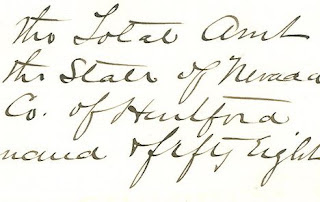 the Total Amt
the State of Nevada
Co. of Hartford
& fifty Eight